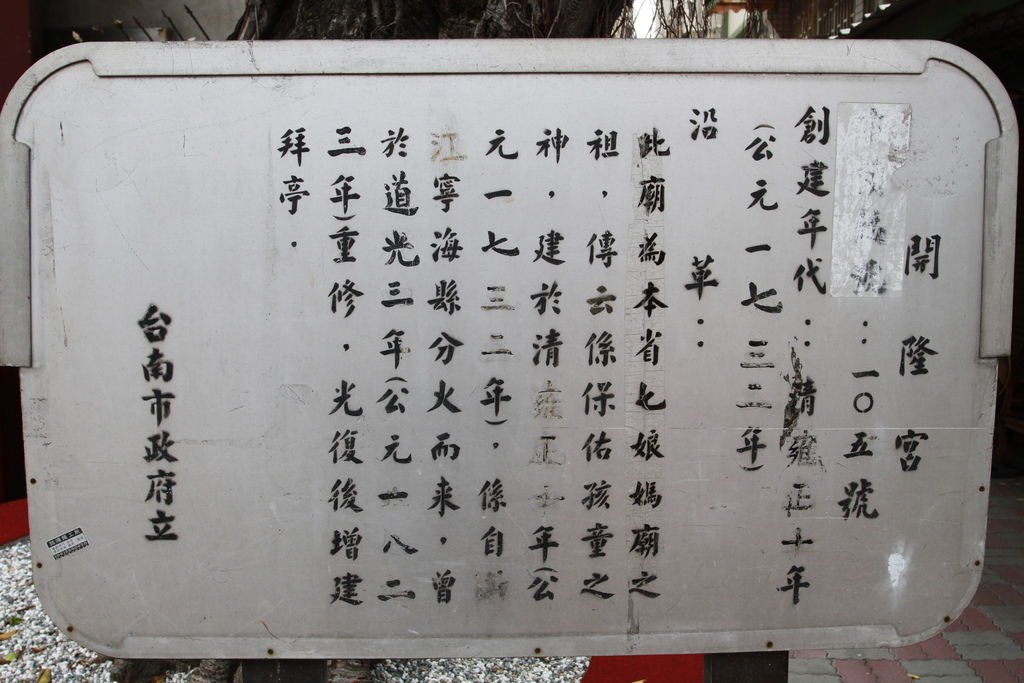 開隆宮
：一〇五號
創建年代：清雍正十年
（公元一七三二年）
沿革：
此廟為本省七娘媽廟之
祖，傳云係保佑孩童之
神，建於清雍正十年（公
元一七三二年），係自浙
江寧海縣分火而来，曾
於道光三年（公元一八二
三年）重修，光復後增建
拜亭．
台南市政府立